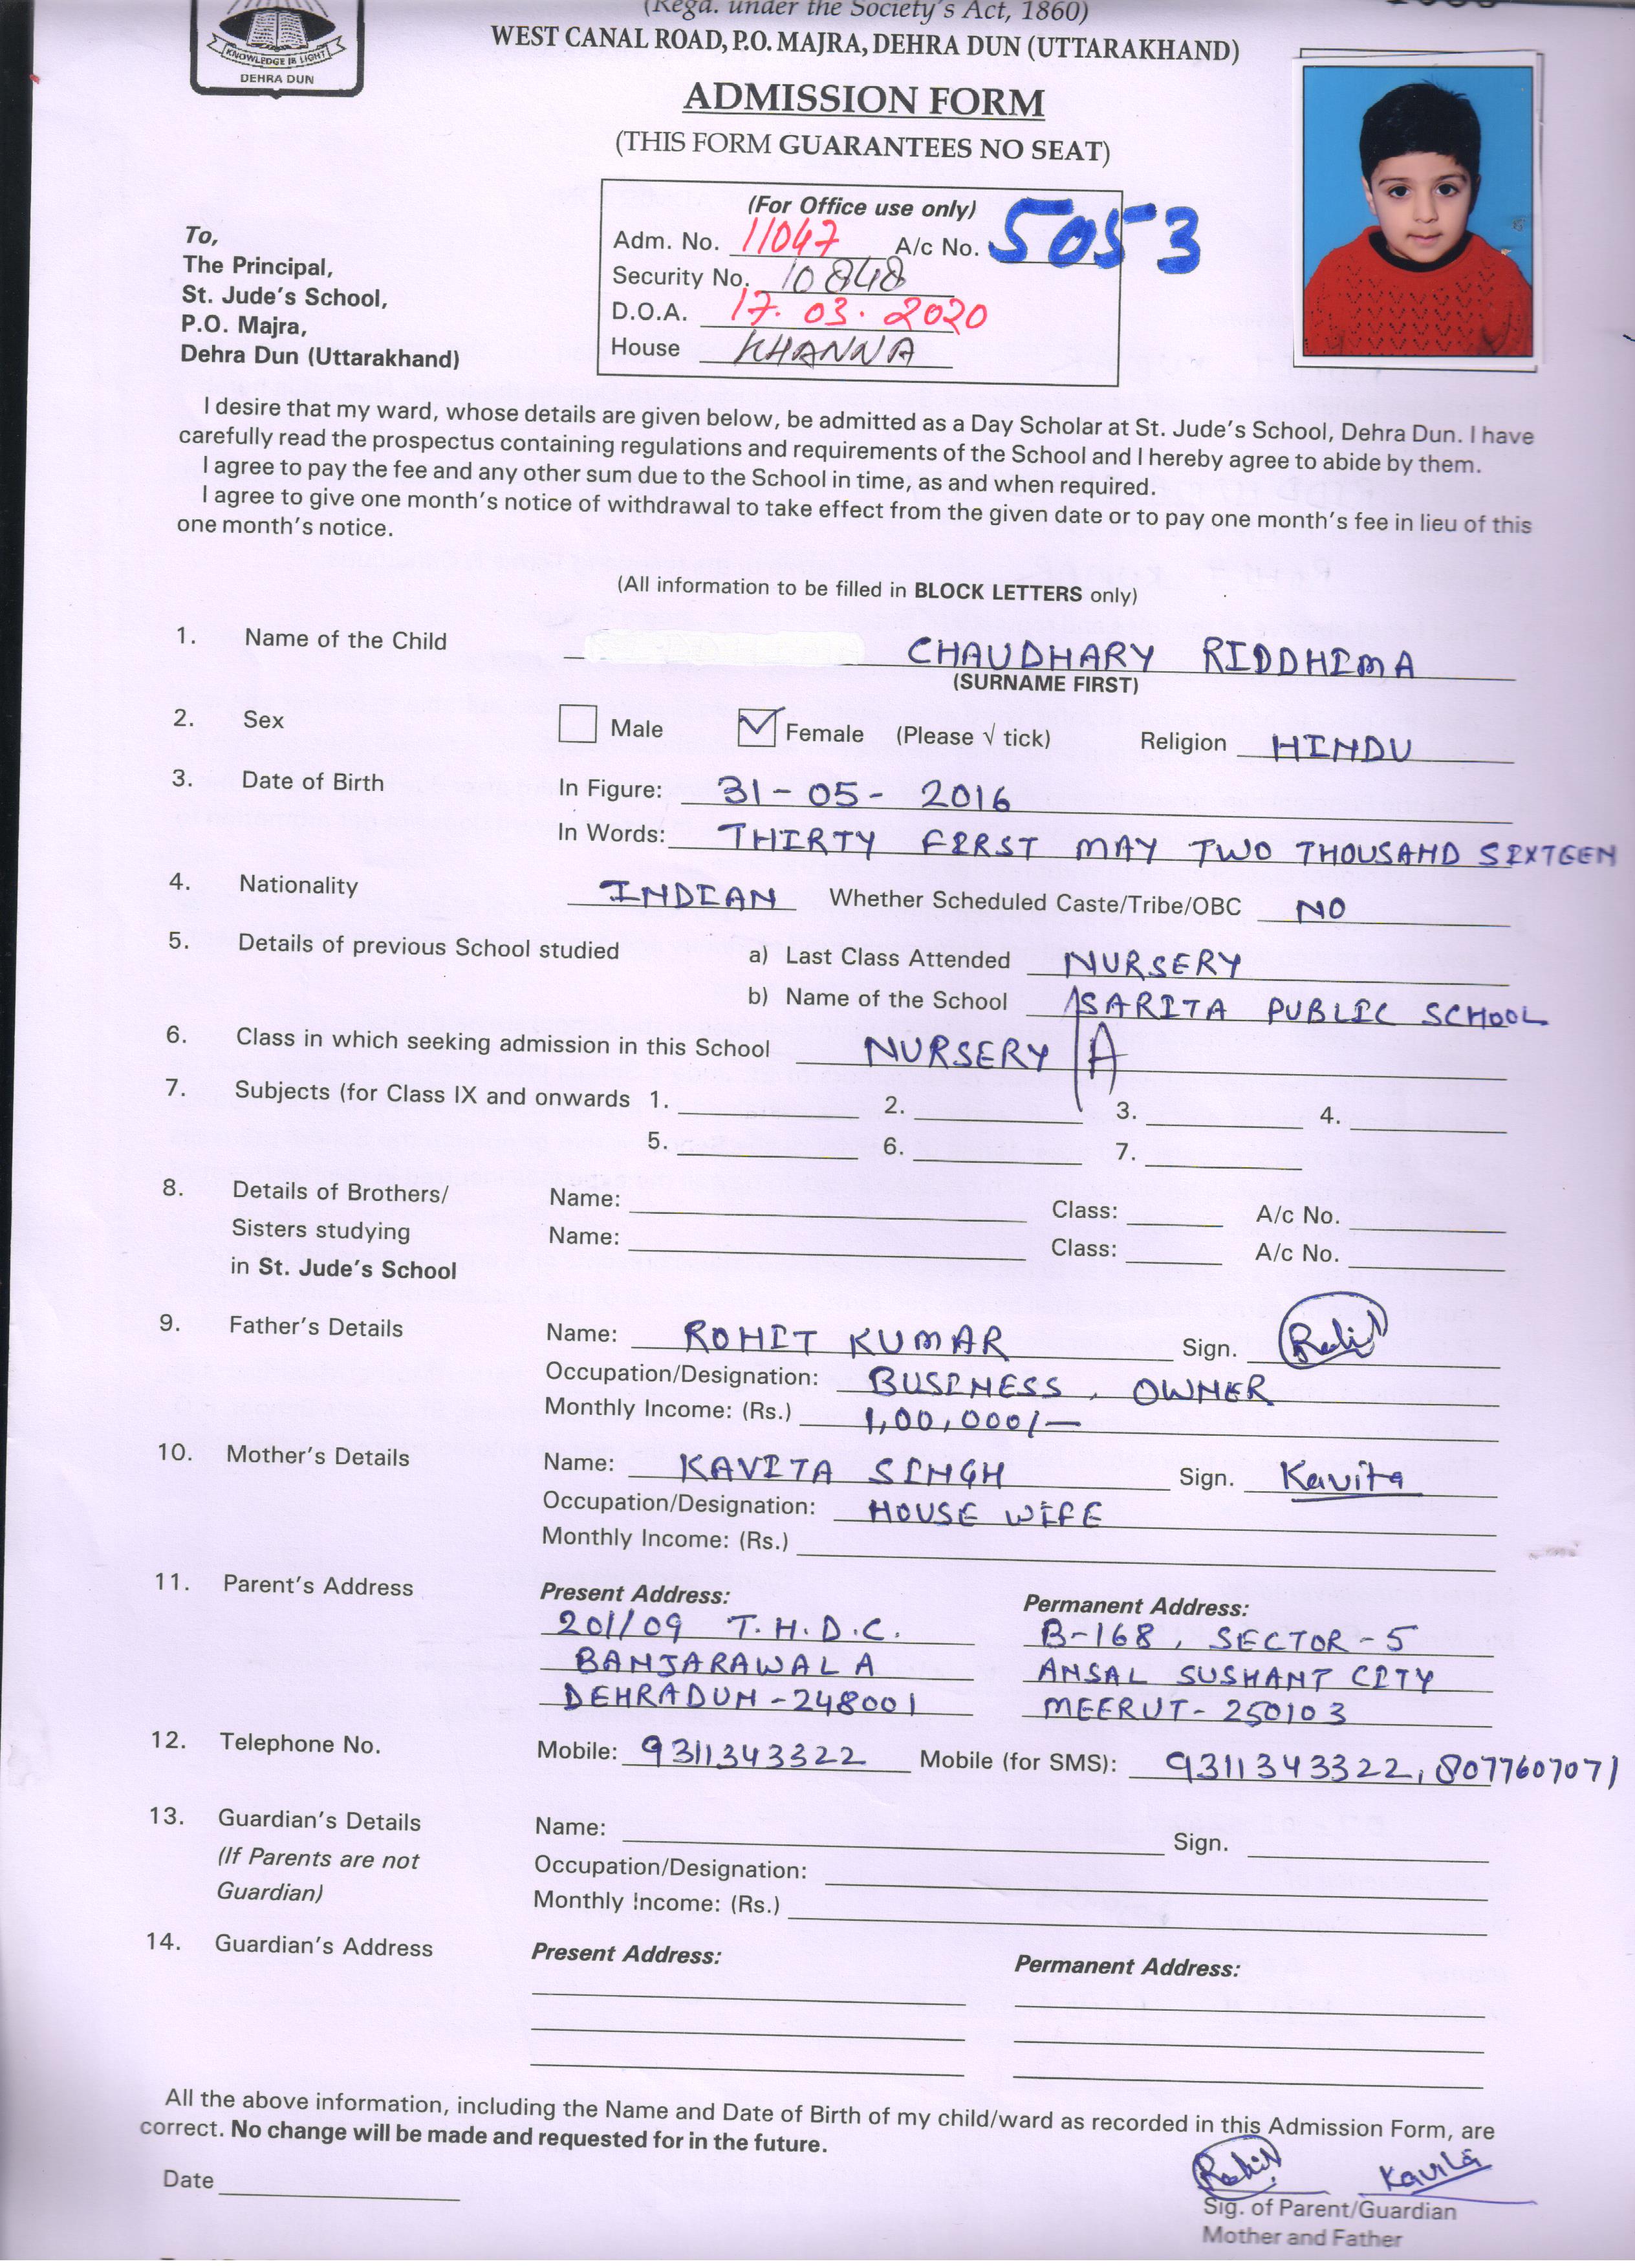 (Regd. under the Society's Act, 1860)
WEST CANAL ROAD, P.O. MAJRA, DEHRA DUN (UTTARAKHAND)
KNOWLEDGE IS LIGHT
DEHRA DUN
ADMISSION FORM
(THIS FORM GUARANTEES NO SEAT)
(For Office use only)
Adm. No. 11047 A/c No. 5053
Security No. 10848
D.O.A. 17.03.2020
House KHANNA
To,
The Principal,
St. Jude's School,
P.O. Majra,
Dehra Dun (Uttarakhand)
I desire that my ward, whose details are given below, be admitted as a Day Scholar at St. Jude's School, Dehra Dun. I have
carefully read the prospectus containing regulations and requirements of the School and I hereby agree to abide by them.
I agree to pay the fee and any other sum due to the School in time, as and when required.
I agree to give one month's notice of withdrawal to take effect from the given date or to pay one month's fee in lieu of this
one month's notice.
(All information to be filled in BLOCK LETTERS only)
1. Name of the Child CHAUDHARY RIDDHIMA
(SURNAME FIRST)
2. Sex Male Female (Please √ tick) Religion HINDU
3. Date of Birth In Figure: 31-05-2016
In Words: THIRTY FIRST MAY TWO THOUSAND SIXTEEN
4. Nationality INDIAN Whether Scheduled Caste/Tribe/OBC NO
5. Details of previous School studied a) Last Class Attended NURSERY
b) Name of the School SARITA PUBLIC SCHOOL
6. Class in which seeking admission in this School NURSERY A
7. Subjects (for Class IX and onwards 1. 2. 3. 4.
5. 6. 7.
8. Details of Brothers/ Name: Class: A/c No.
Sisters studying Name: Class: A/c No.
in St. Jude's School
9. Father's Details Name: ROHIT KUMAR Sign. Rohit
Occupation/Designation: BUSINESS, OWNER
Monthly Income: (Rs.) 1,00,000/-
10. Mother's Details Name: KAVITA SINGH Sign. Kavita
Occupation/Designation: HOUSE WIFE
Monthly Income: (Rs.)
11. Parent's Address Present Address: Permanent Address:
201/09 T.H.D.C. B-168, SECTOR-5
BANJARAWALA ANSAL SUSHANT CITY
DEHRADUN-248001 MEERUT-250103
12. Telephone No. Mobile: 9311343322 Mobile (for SMS): 9311343322, 8077607071
13. Guardian's Details Name: Sign.
(If Parents are not Occupation/Designation:
Guardian) Monthly Income: (Rs.)
14. Guardian's Address Present Address: Permanent Address:
All the above information, including the Name and Date of Birth of my child/ward as recorded in this Admission Form, are
correct. No change will be made and requested for in the future.
Rohit Kavita
Date
Sig. of Parent/Guardian
Mother and Father